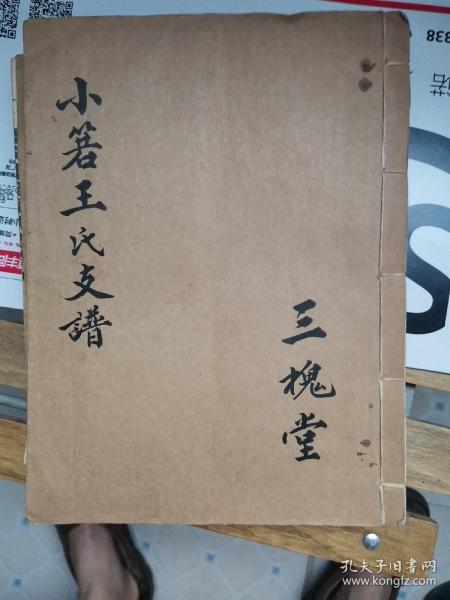 小箬王氏支譜
三槐堂
338
孔夫子旧书网
www.kongfz.com